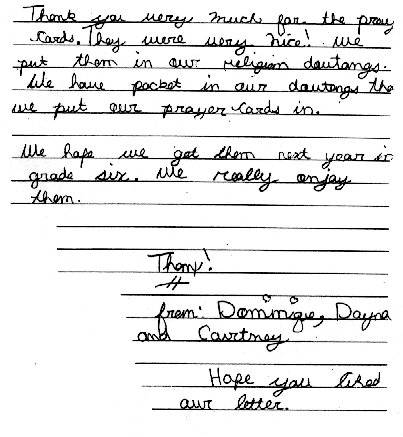 Thank you very much for the pray
cards. They were very nice! We
put them in our religion doutangs.
We have pocket in our doutangs the
we put our prayer cards in.
We hope we get them next year in
grade six. We really enjoy
them.
Thanx!
from: Dominique, Dayna
and Courtney
Hope you liked
our letter.